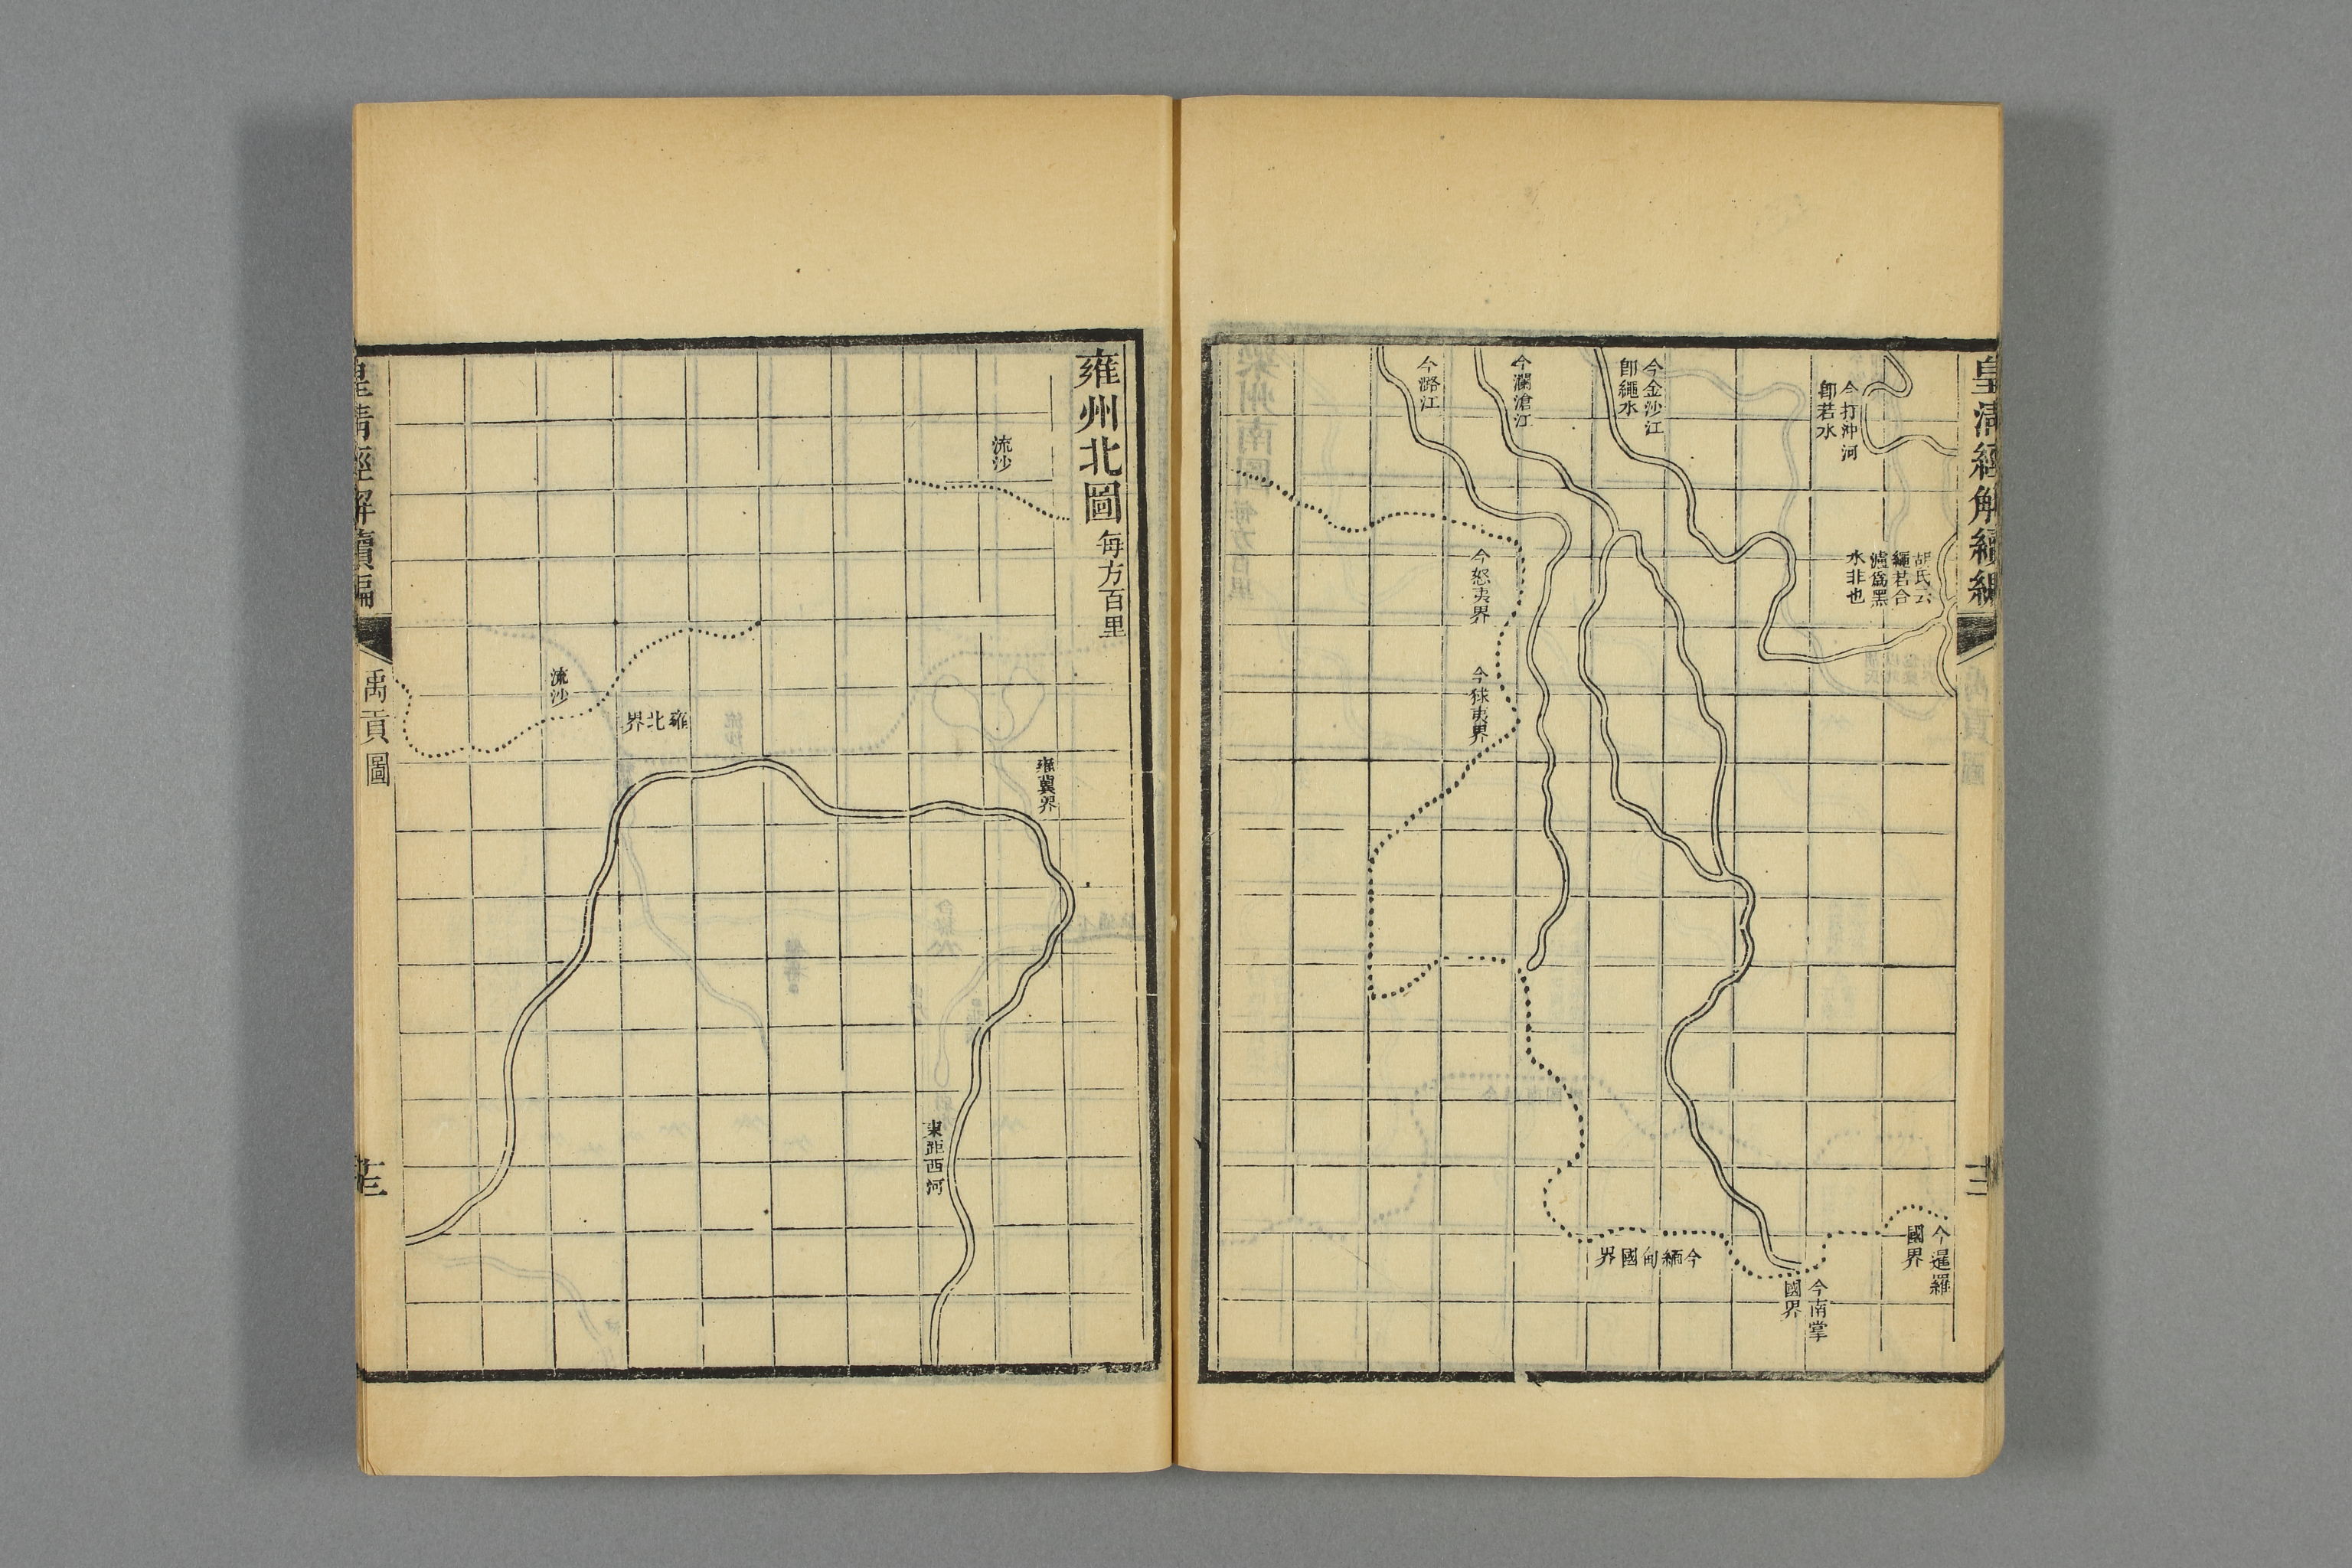 皇清經解續編
今打沖河
卽若水
今金沙江
卽繩水
今瀾滄江
今潞江
胡氏云
繩若合
瀘爲黑
水非也
今怒夷界
今㺨夷界
今暹羅
國界
今南掌
國界
今緬甸國界
雍州北圖每方百里
流沙
雍冀界
雍北界
流沙
東距西河
皇清經解續編
禹貢圖
十三